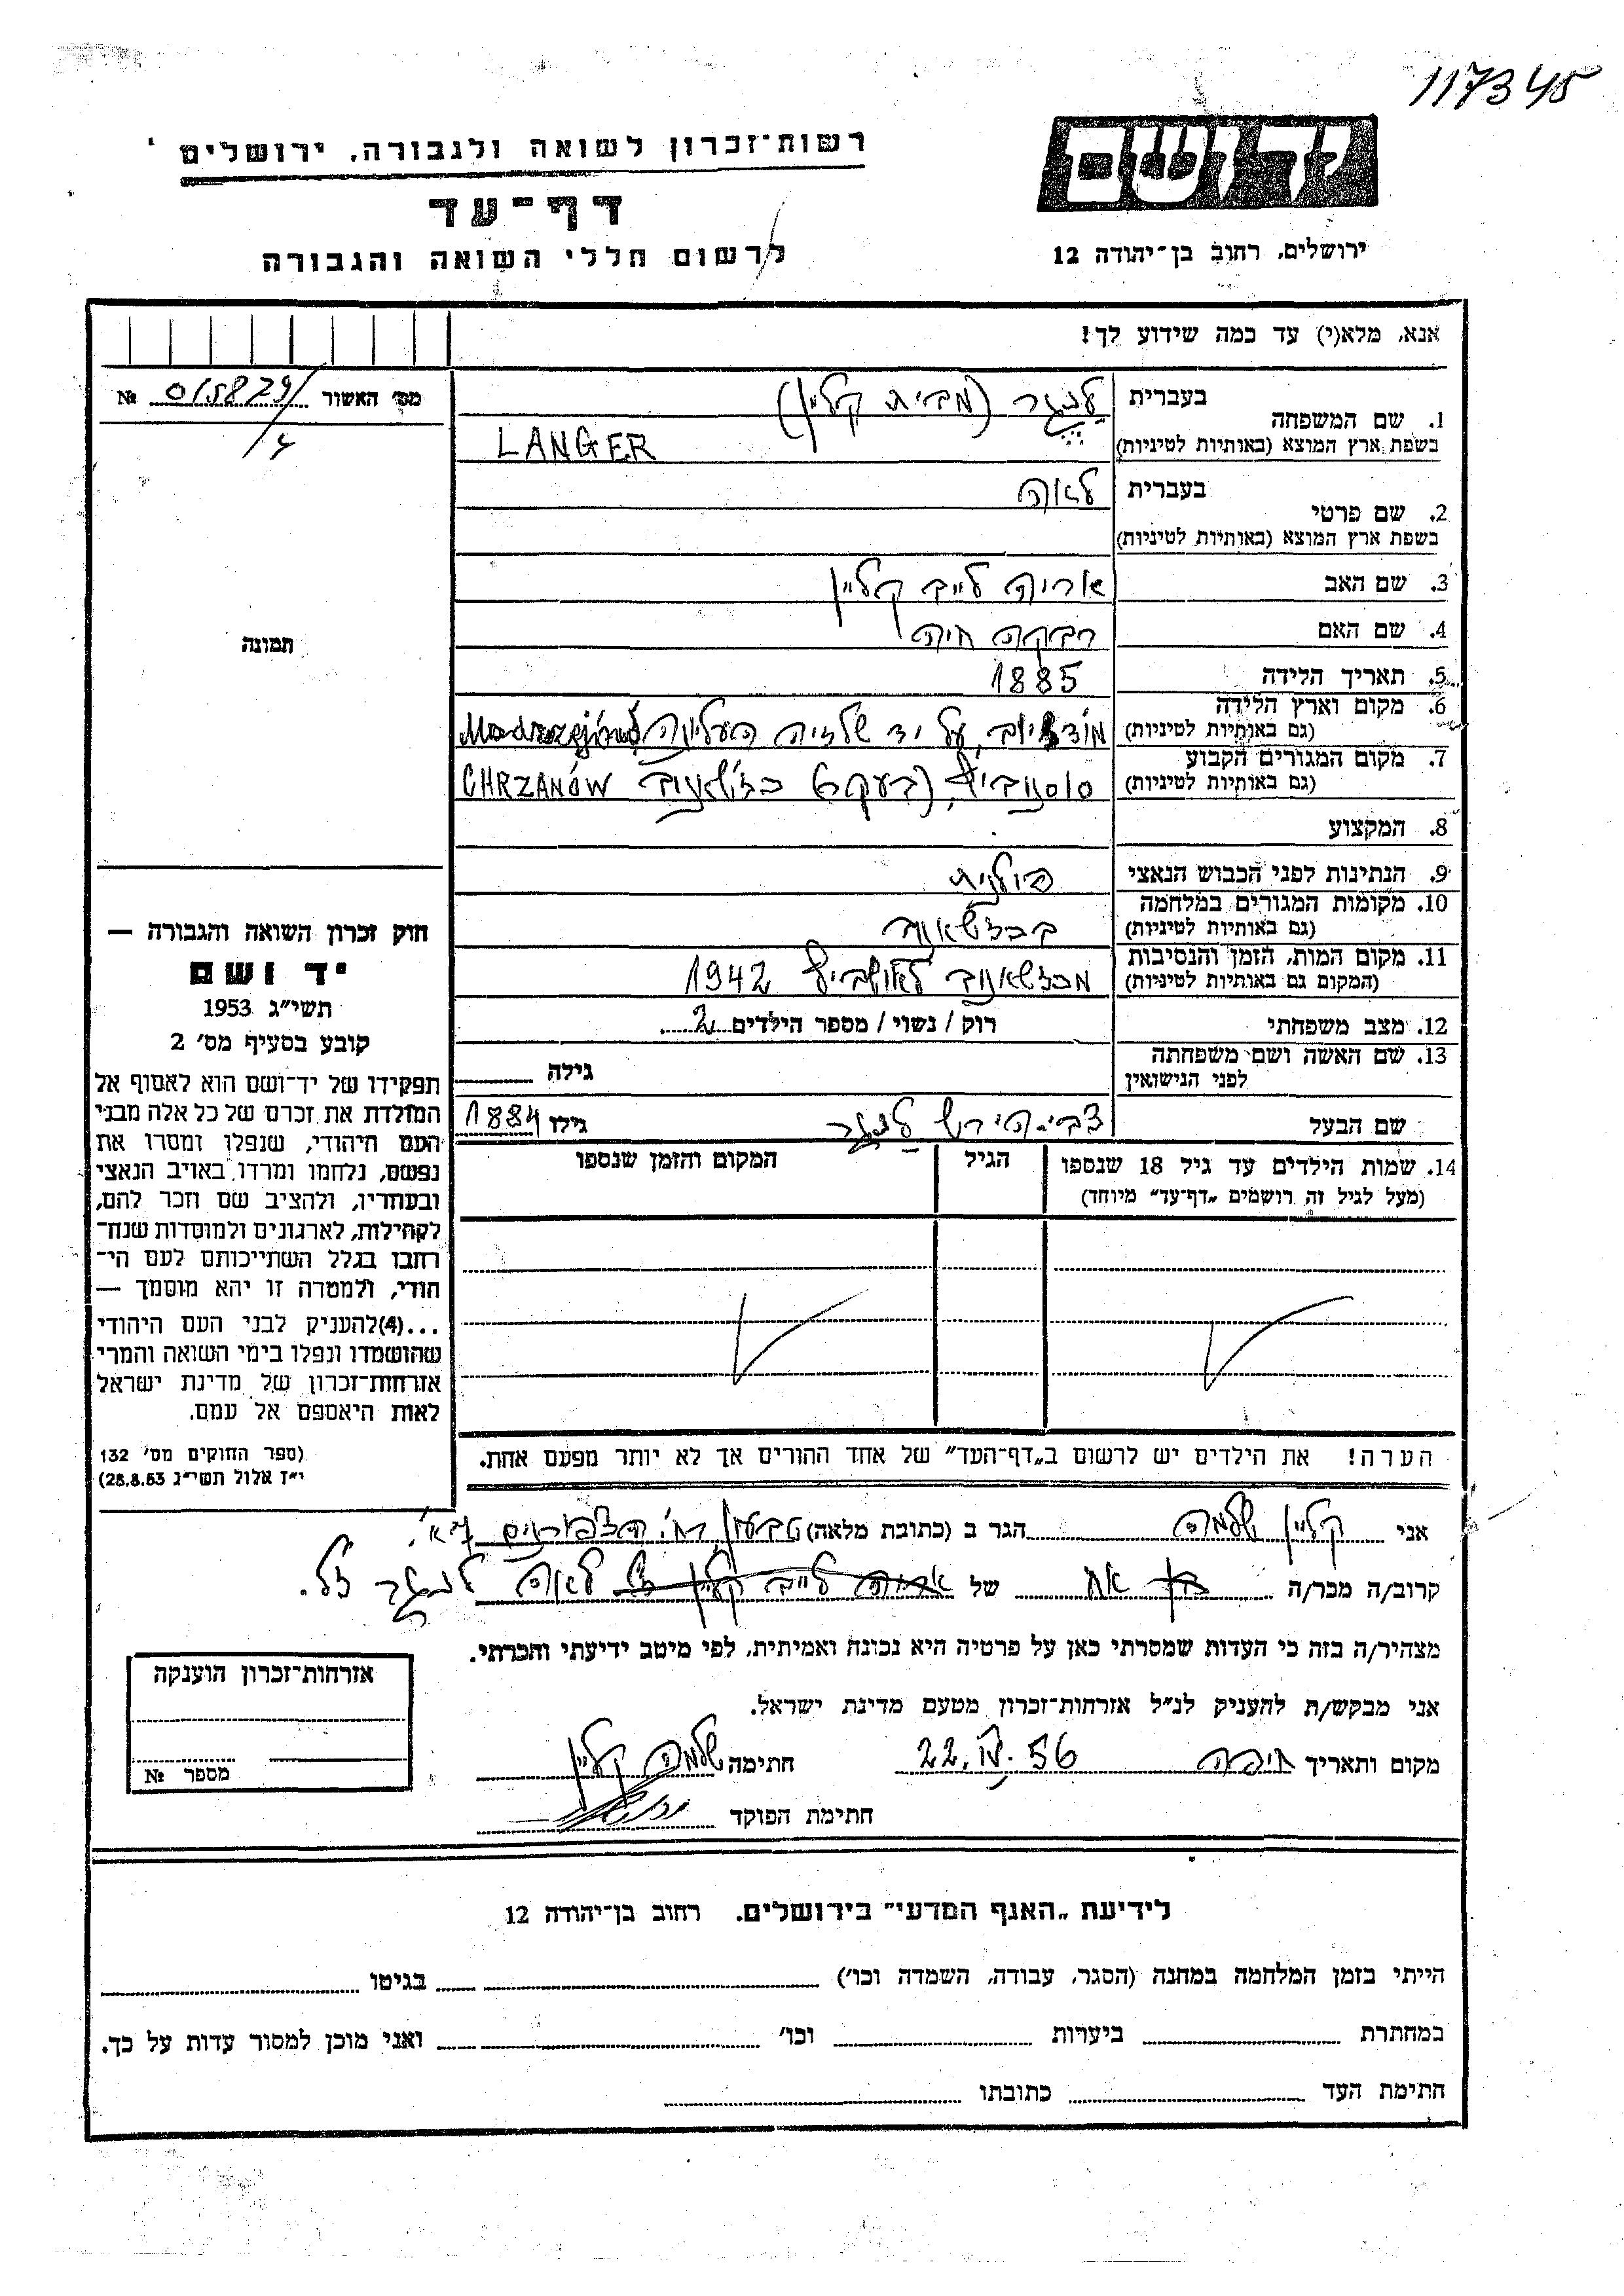 117345
יד ושם
ירושלים, רחוב בן־יהודה 12
רשות־זכרון לשואה ולגבורה, ירושלים
דף־עד
לרשום חללי השואה והגבורה
אנא, מלא(י) עד כמה שידוע לך!
מס' האשור 015829/ №
4
תמונה
1. שם המשפחה בעברית לנגר (מבית קליין)
בשפת ארץ המוצא (באותיות לטיניות) LANGER
2. שם פרטי בעברית לאה
בשפת ארץ המוצא (באותיות לטיניות)
3. שם האב אריה לייב קליין
4. שם האם רבקה חיה
5. תאריך הלידה 1885
6. מקום וארץ הלידה
(גם באותיות לטיניות) על יד שלזיה העליונה
7. מקום המגורים הקבוע
(גם באותיות לטיניות) CHRZANÓW
8. המקצוע
9. הנתינות לפני הכבוש הנאצי פולנית
10. מקומות המגורים במלחמה
(גם באותיות לטיניות) בכזשאנוב
11. מקום המות, הזמן והנסיבות
(המקום גם באותיות לטיניות) מכזשאנוב לאושביץ 1942
12. מצב משפחתי רוק / נשוי / מספר הילדים 2
13. שם האשה ושם משפחתה
לפני הנישואין גילה
שם הבעל צבי־הירש לנגר גילו 1884
14. שמות הילדים עד גיל 18 שנספו הגיל המקום והזמן שנספו
(מעל לגיל זה רושמים „דף־עד" מיוחד)
הערה! את הילדים יש לרשום ב„דף־העד" של אחד ההורים אך לא יותר מפעם אחת.
חוק זכרון השואה והגבורה —
יד ושם
תשי"ג 1953
קובע בסעיף מס' 2
תפקידו של יד־ושם הוא לאסוף אל
המולדת את זכרם של כל אלה מבני
העם היהודי, שנפלו ומסרו את
נפשם, נלחמו ומרדו באויב הנאצי
ובעוזריו, ולהציב שם וזכר להם,
לקהילות, לארגונים ולמוסדות שנח־
רבו בגלל השתייכותם לעם הי־
הודי, ולמטרה זו יהא מוסמך —
...(4) להעניק לבני העם היהודי
שהושמדו ונפלו בימי השואה והמרי
אזרחות־זכרון של מדינת ישראל
לאות היאספם אל עמם.
(ספר החוקים מס' 132
י"ז אלול תשי"ג 28.8.53)
אני קליין שלמה הגר ב (כתובת מלאה) טבעון רח' הצפורנים
קרוב/ה מכר/ה בן אח של אריה לייב קליין ז"ל לאה לנגר ז"ל.
מצהיר/ה בזה כי העדות שמסרתי כאן על פרטיה היא נכונה ואמיתית, לפי מיטב ידיעתי והכרתי.
אני מבקש/ת להעניק לנ"ל אזרחות־זכרון מטעם מדינת ישראל.
מקום ותאריך חיפה 22.IV.56 חתימה שלמה קליין
חתימת הפוקד
אזרחות־זכרון הוענקה
מספר №
לידיעת „האגף המדעי" בירושלים, רחוב בן־יהודה 12
הייתי בזמן המלחמה במחנה (הסגר, עבודה, השמדה וכו') בגיטו
במחתרת ביערות וכו' ואני מוכן למסור עדות על כך.
חתימת העד כתובתו